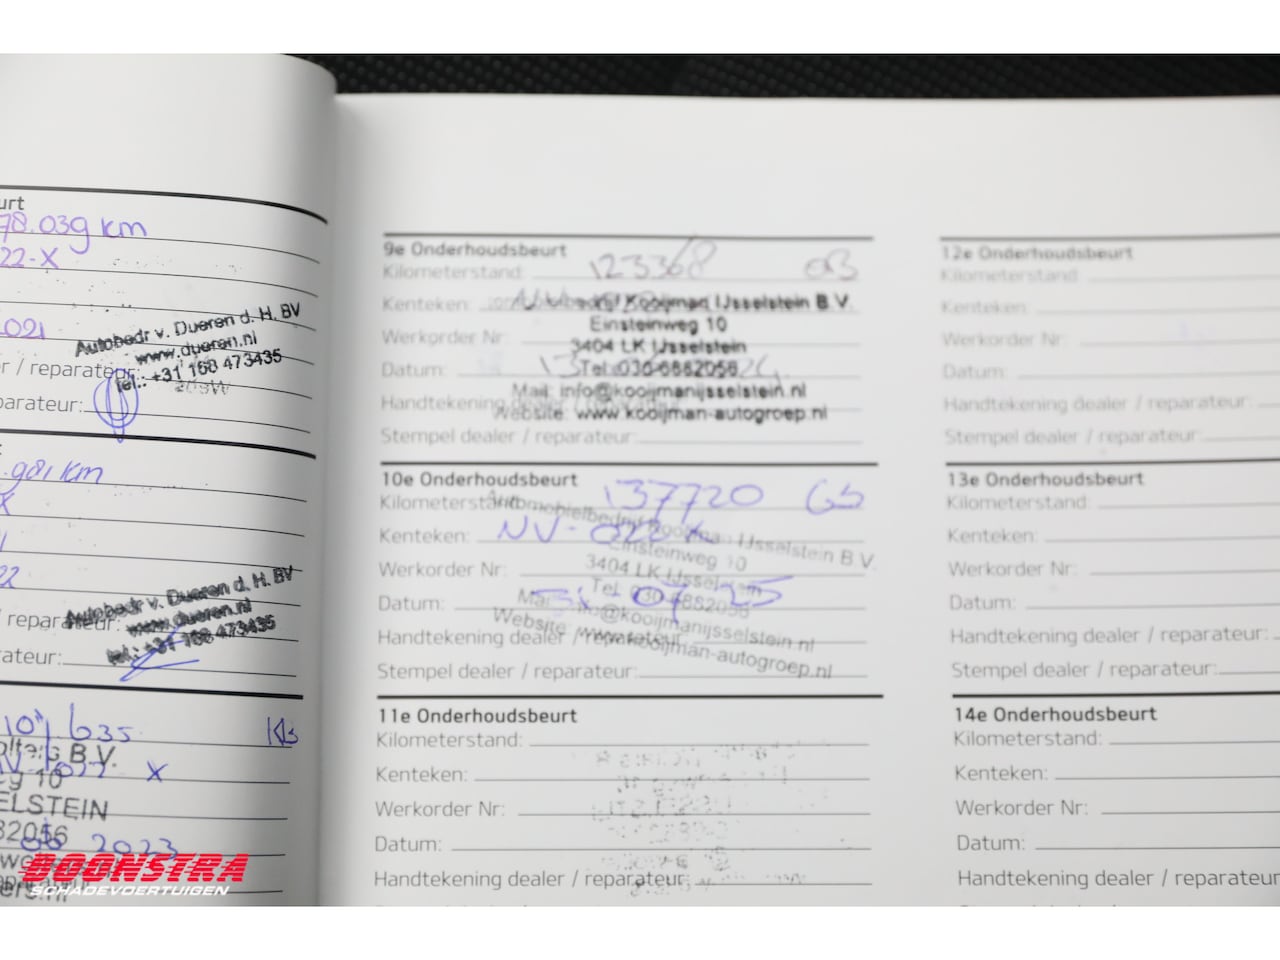 urt
78.039 km
22-X
2021
Autobedr v. Dueren d. H. BV
www.dueren.nl
tel.: +31 168 473435
r / reparateur:
parateur:
.981 km
X
22
Autobedr v. Dueren d. H. BV
www.dueren.nl
tel.: +31 168 473435
/ reparateur:
rateur:
635
B.V.
X
10
ELSTEIN
82056
2023
9e Onderhoudsbeurt
Kilometerstand: 123368
Kenteken:
Kooijman IJsselstein B.V.
Einsteinweg 10
Werkorder Nr:
3404 LK IJsselstein
Datum: 13
Tel: 030-6882056
Mail: info@kooijmanijsselstein.nl
Handtekening dealer / reparateur:
Website: www.kooijman-autogroep.nl
Stempel dealer / reparateur:
10e Onderhoudsbeurt
Kilometerstand: 137720 GS
Automobielbedrijf Kooijman IJsselstein B.V.
Kenteken: NV-022-X
Einsteinweg 10
Werkorder Nr:
3404 LK IJsselstein
Tel: 030-6882056
Datum: 31 07 25
Mail: info@kooijmanijsselstein.nl
Handtekening dealer / reparateur:
Website: www.kooijman-autogroep.nl
Stempel dealer / reparateur:
11e Onderhoudsbeurt
Kilometerstand:
Kenteken:
Werkorder Nr:
Datum:
Handtekening dealer / reparateur:
12e Onderhoudsbeurt
Kilometerstand:
Kenteken:
Werkorder Nr:
Datum:
Handtekening dealer / reparateur:
Stempel dealer / reparateur:
13e Onderhoudsbeurt
Kilometerstand:
Kenteken:
Werkorder Nr:
Datum:
Handtekening dealer / reparateur:
Stempel dealer / reparateur:
14e Onderhoudsbeurt
Kilometerstand:
Kenteken:
Werkorder Nr:
Datum:
Handtekening dealer / reparateur
BOONSTRA
SCHADEVOERTUIGEN